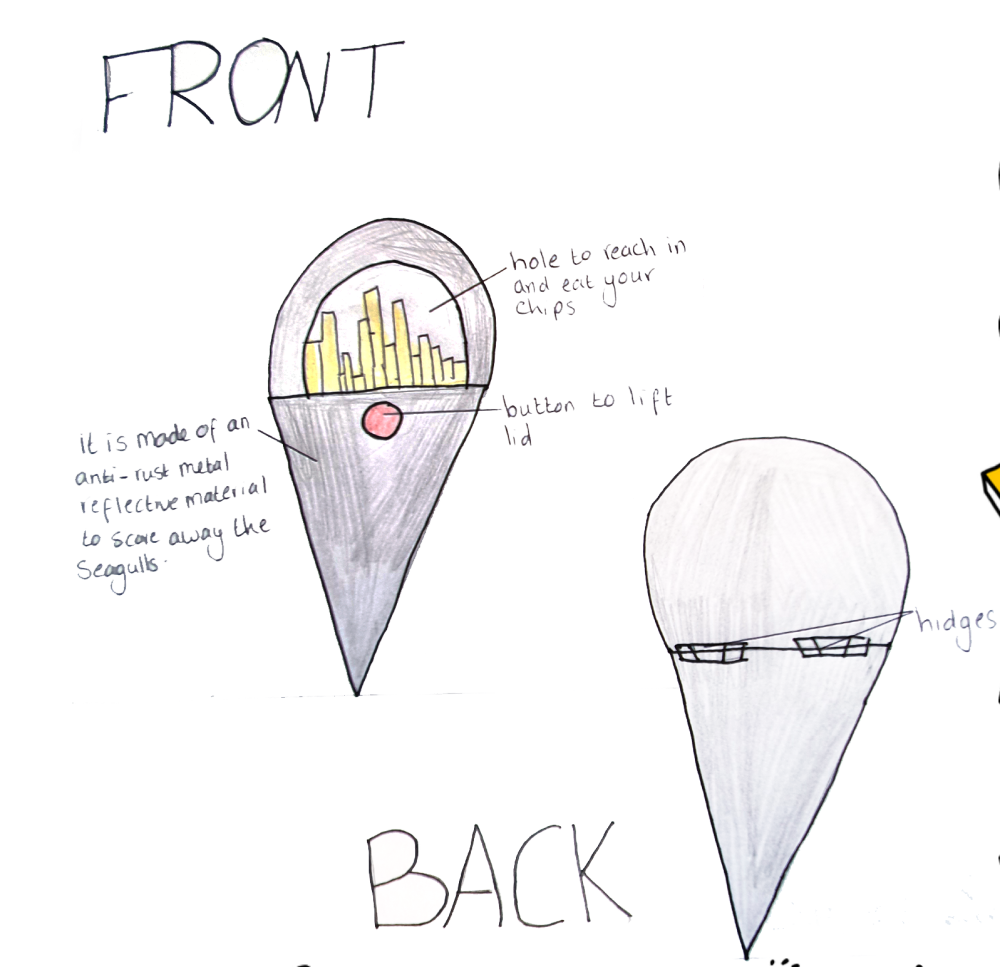 FRONT
hole to reach in
and eat your
chips
button to lift
lid
it is made of an
anti-rust metal
reflective material
to scare away the
Seagulls.
hidges
BACK